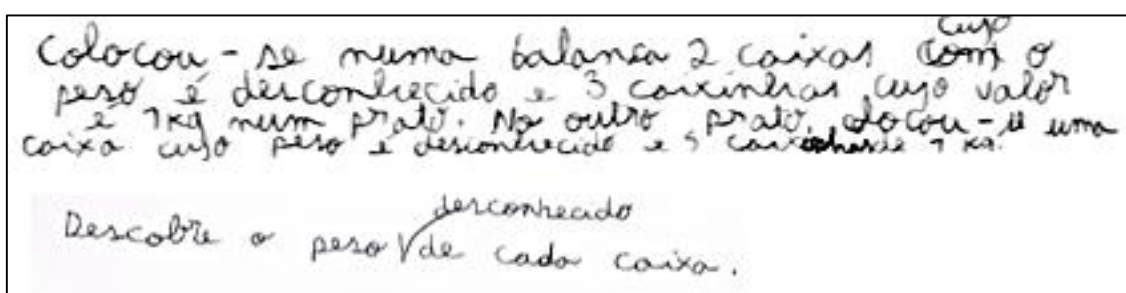 Colocou-se numa balança 2 caixas cujo o
peso é desconhecido e 3 caixinhas cujo valor
é 1kg num prato. No outro prato, colocou-se uma
caixa cujo peso é desconhecido e 5 caixinhas de 1 kg.
Descobre o peso desconhecido de cada caixa.